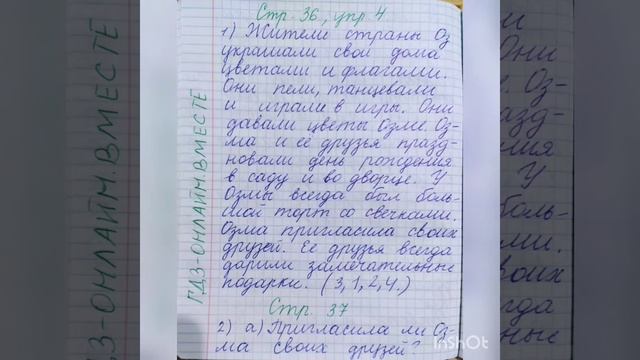 Стр. 36, упр 4
1) Жители страны Оз
украшали свои дома
цветами и флагами.
Они пели, танцевали
и играли в игры. Они
давали цветы Озме. Оз-
ма и её друзья празд-
новали день рождения
в саду и во дворце. У
Озмы всегда был боль-
шой торт со свечками.
Озма пригласила своих
друзей. Её друзья всегда
дарили замечательные
подарки. (3, 1, 2, 4.)
Стр. 37
2) а) Пригласила ли Оз-
ма своих друзей?
ГДЗ-ОНЛАЙН.ВМЕСТЕ
InShOt